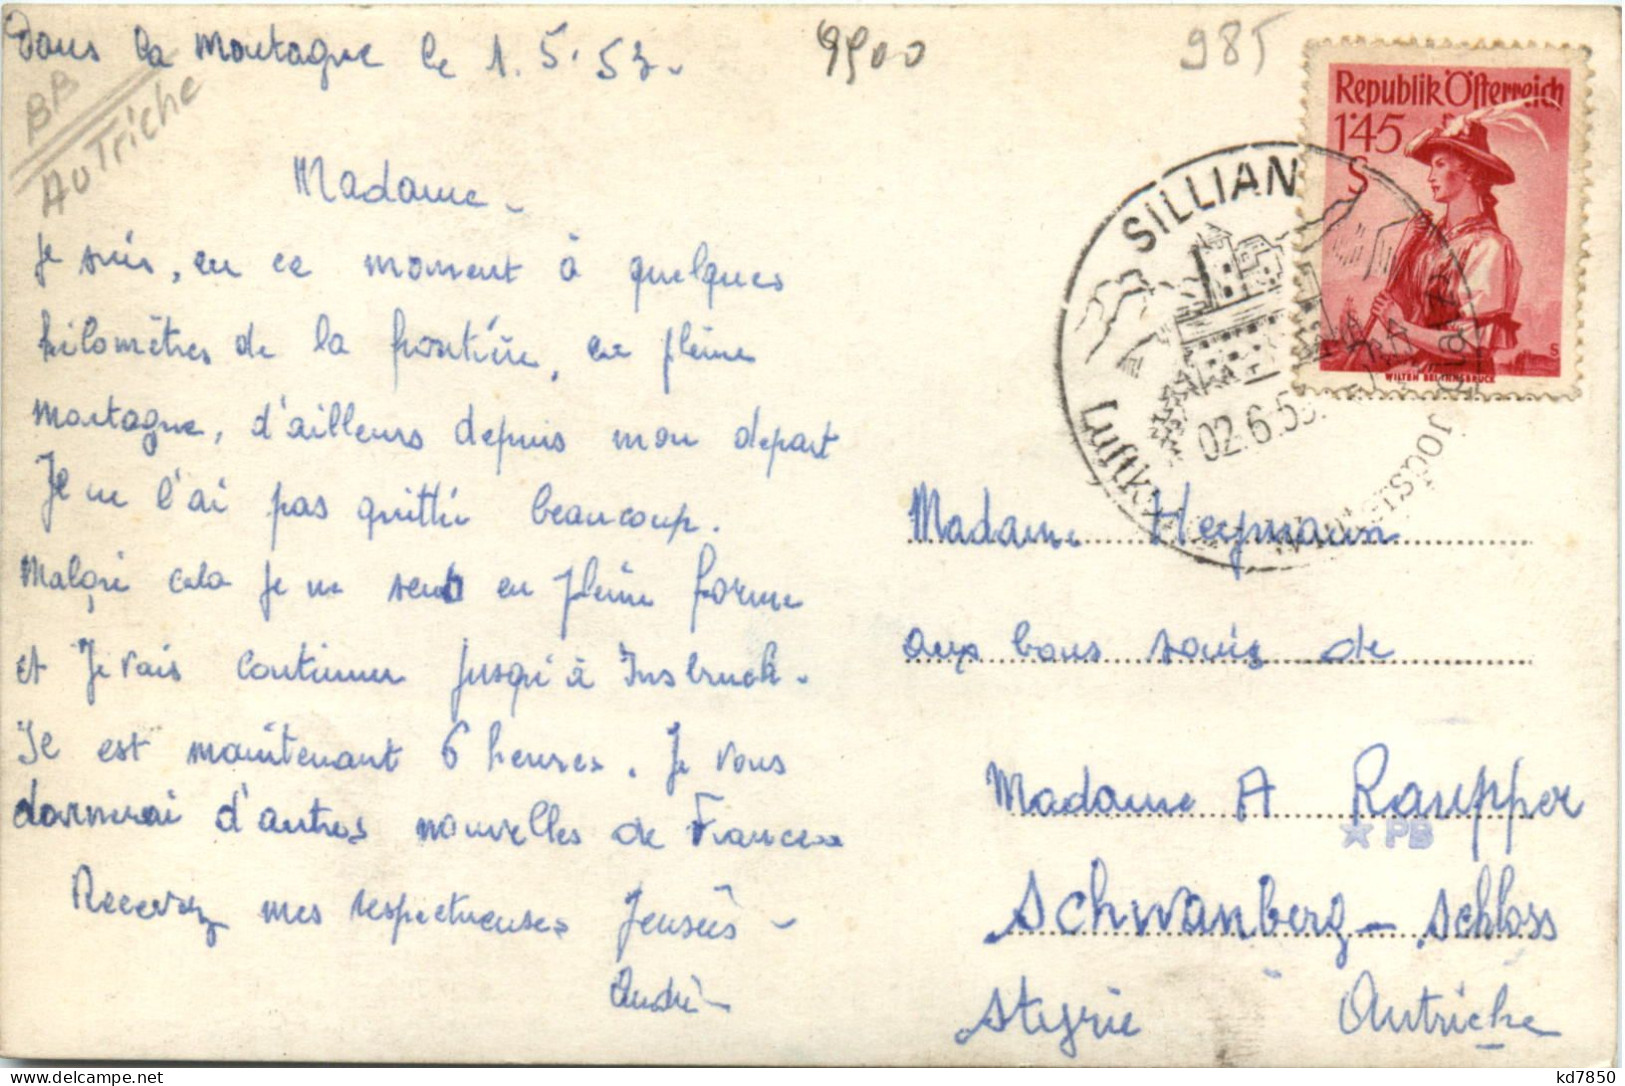 Dans la montagne le 1.5.53.
9900
985
BB
AuTriche
Madame.
Je suis, en ce moment à quelques
kilomètres de la frontière, en pleine
montagne, d'ailleurs depuis mon depart
Je ne l'ai pas quittée beaucoup.
Malgré cela je me sens en pleine forme
et Je vais continuer jusqu'à Insbruck.
Il est maintenant 6 heures. Je vous
donnerai d'autres nouvelles de France
Recevez mes respectueuses pensées
André
Republik Österreich
1'45
S
WILTEN BEI INNSBRUCK
SILLIAN
02.6.53
Luftkurort
Madame Heymann
aux bons soins de
Madame A Raupper
★ PB
Schwanberg - Schloss
Styrie Autriche
kd7850